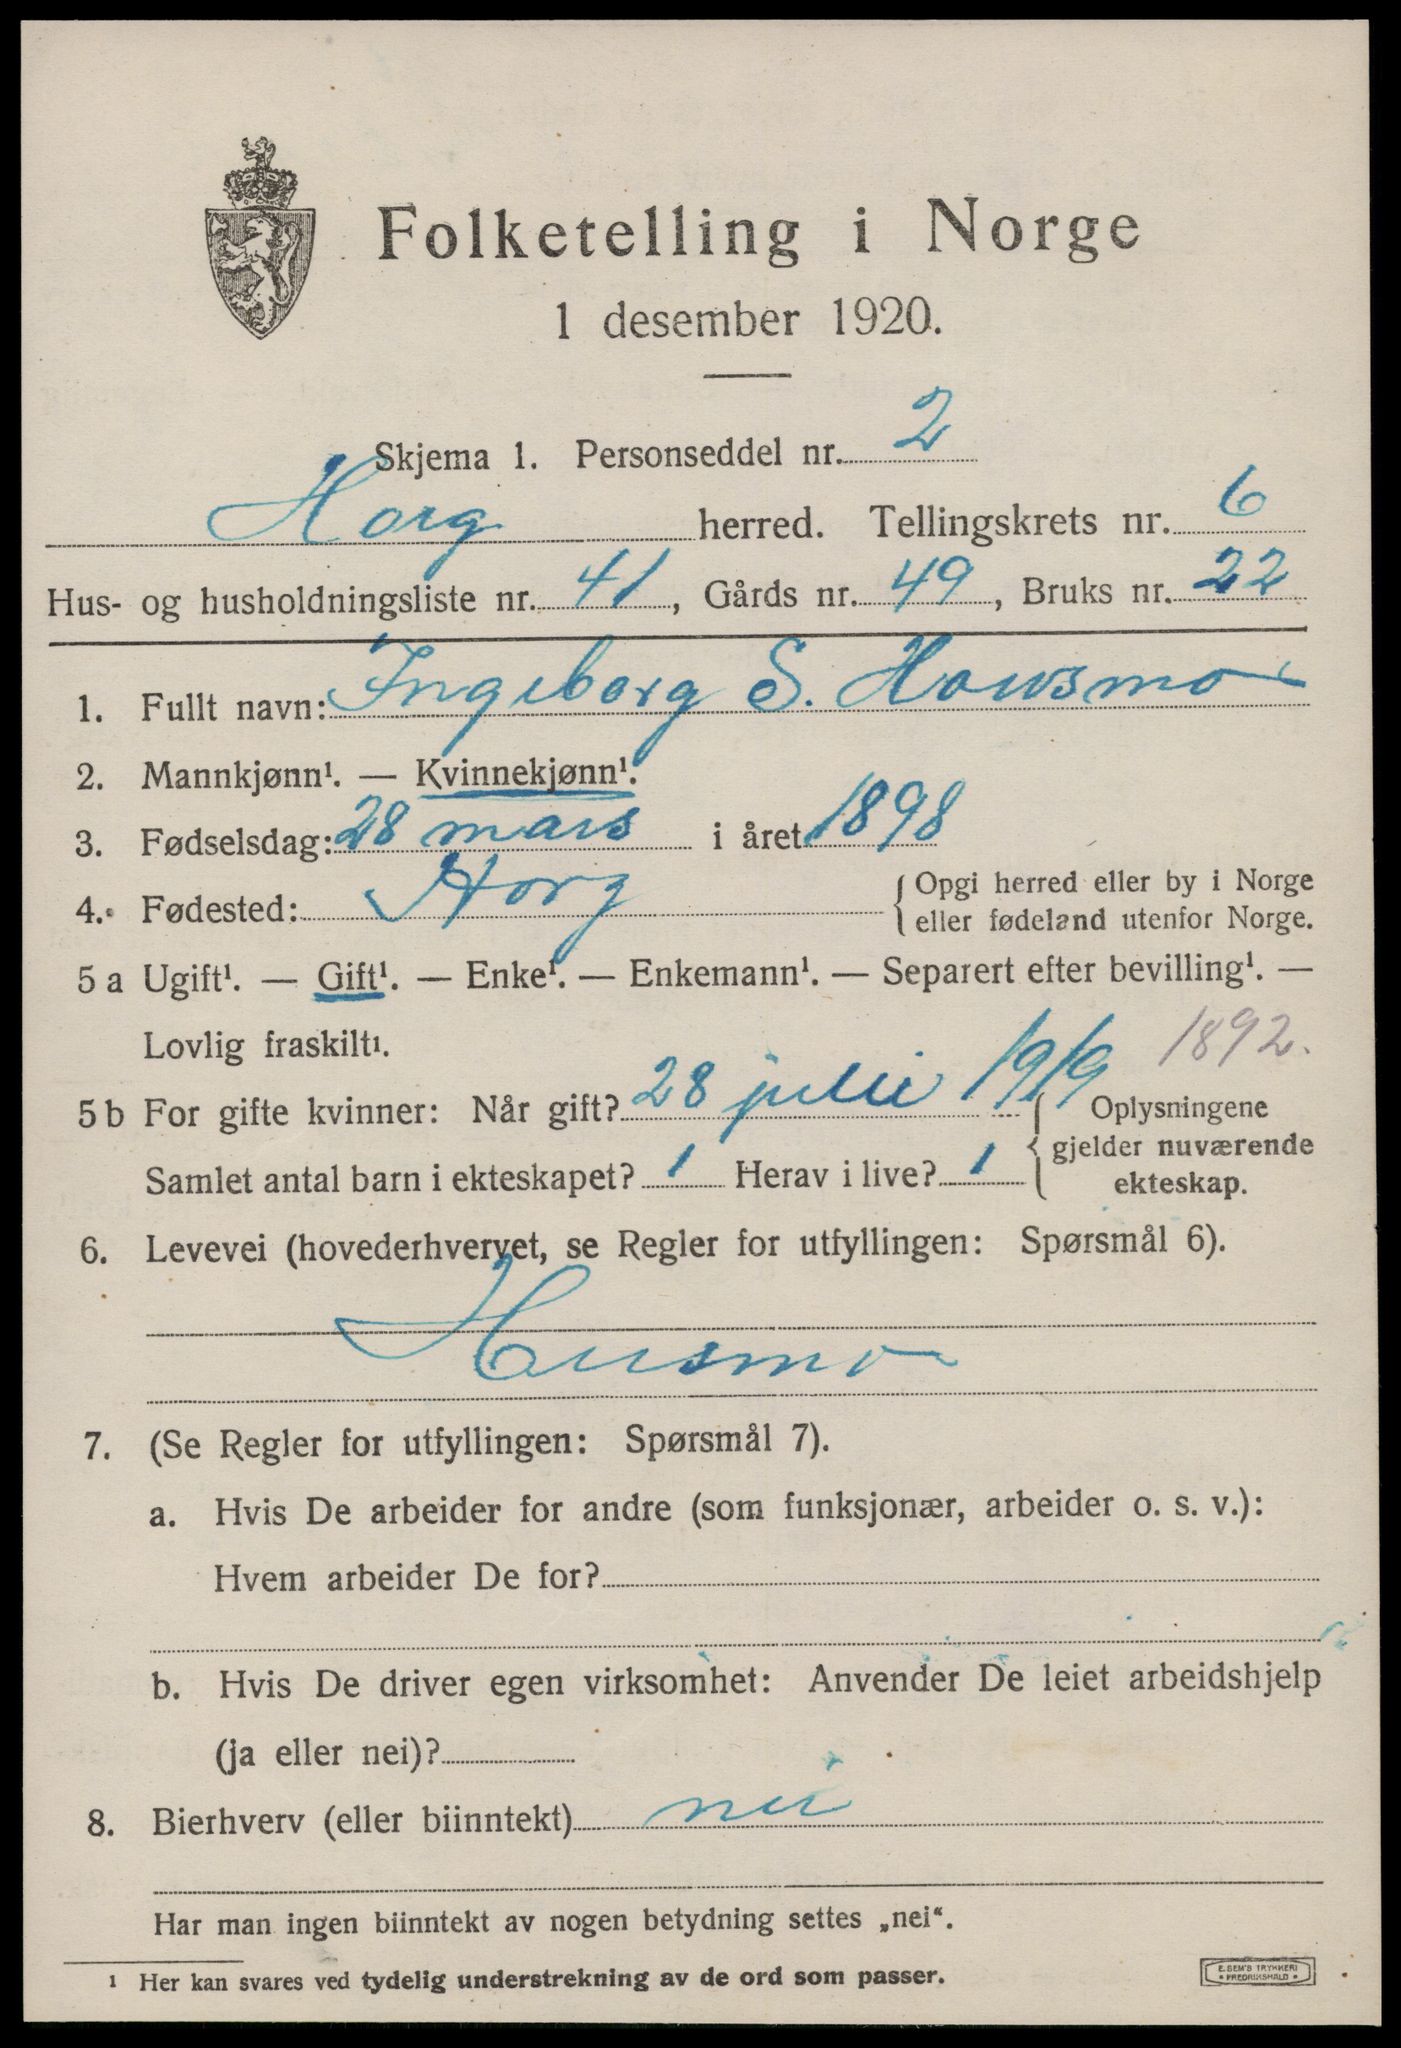 Folketelling i Norge
1 desember 1920.
Skjema 1. Personseddel nr. 2
Horg herred. Tellingskrets nr. 6
Hus- og husholdningsliste nr. 41, Gårds nr. 49, Bruks nr. 22
1. Fullt navn: Ingeborg S. Housmo
2. Mannkjønn¹. — Kvinnekjønn¹.
3. Fødselsdag: 28 mars i året 1898
4. Fødested: Horg { Opgi herred eller by i Norge
eller fødeland utenfor Norge.
5 a Ugift¹. — Gift¹. — Enke¹. — Enkemann¹. — Separert efter bevilling¹. —
Lovlig fraskilt¹.
1892.
5 b For gifte kvinner: Når gift? 28 juli 1919 { Oplysningene
gjelder nuværende
Samlet antal barn i ekteskapet? 1 Herav i live? 1 ekteskap.
6. Levevei (hovederhvervet, se Regler for utfyllingen: Spørsmål 6).
Husmo
7. (Se Regler for utfyllingen: Spørsmål 7).
a. Hvis De arbeider for andre (som funksjonær, arbeider o. s. v.):
Hvem arbeider De for?
b. Hvis De driver egen virksomhet: Anvender De leiet arbeidshjelp
(ja eller nei)?
8. Bierhverv (eller biinntekt) nei
Har man ingen biinntekt av nogen betydning settes „nei“.
¹ Her kan svares ved tydelig understrekning av de ord som passer.
E. SEM'S TRYKKERI
• FREDRIKSHALD •